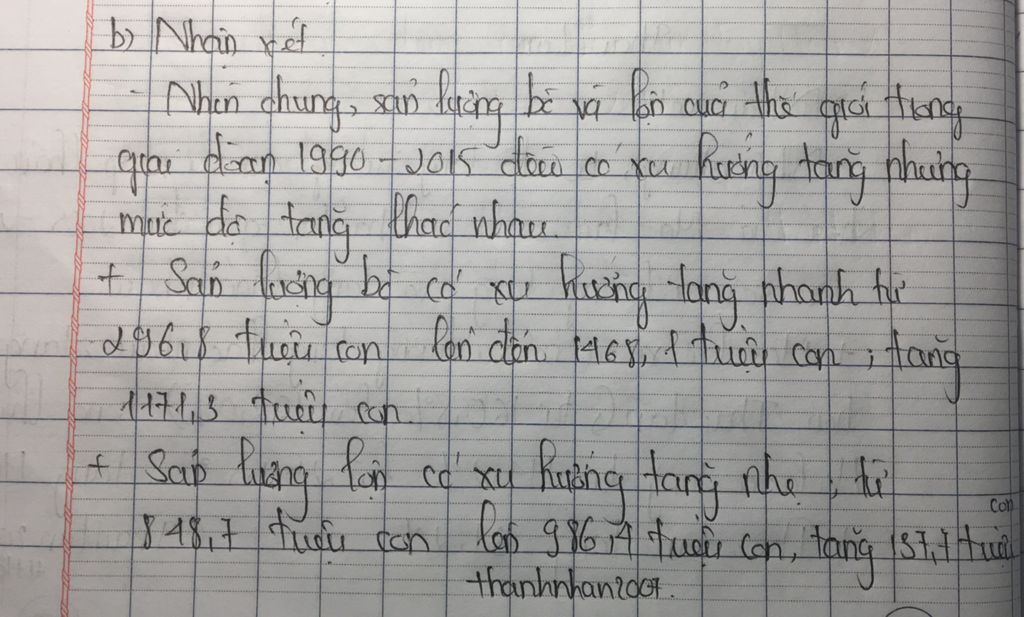 b) Nhận xét.
- Nhìn chung, sản lượng bò và lợn của thế giới trong
giai đoạn 1990 - 2015 đều có xu hướng tăng nhưng
mức độ tăng khác nhau.
+ Sản lượng bò có xu hướng tăng nhanh từ
296,8 triệu con lên đến 1468,1 triệu con, tăng
1171,3 triệu con.
+ Sản lượng lợn có xu hướng tăng nhẹ, từ
848,7 triệu con lên 986,4 triệu con, tăng 137,7 triệu con
thanhnhan2007.